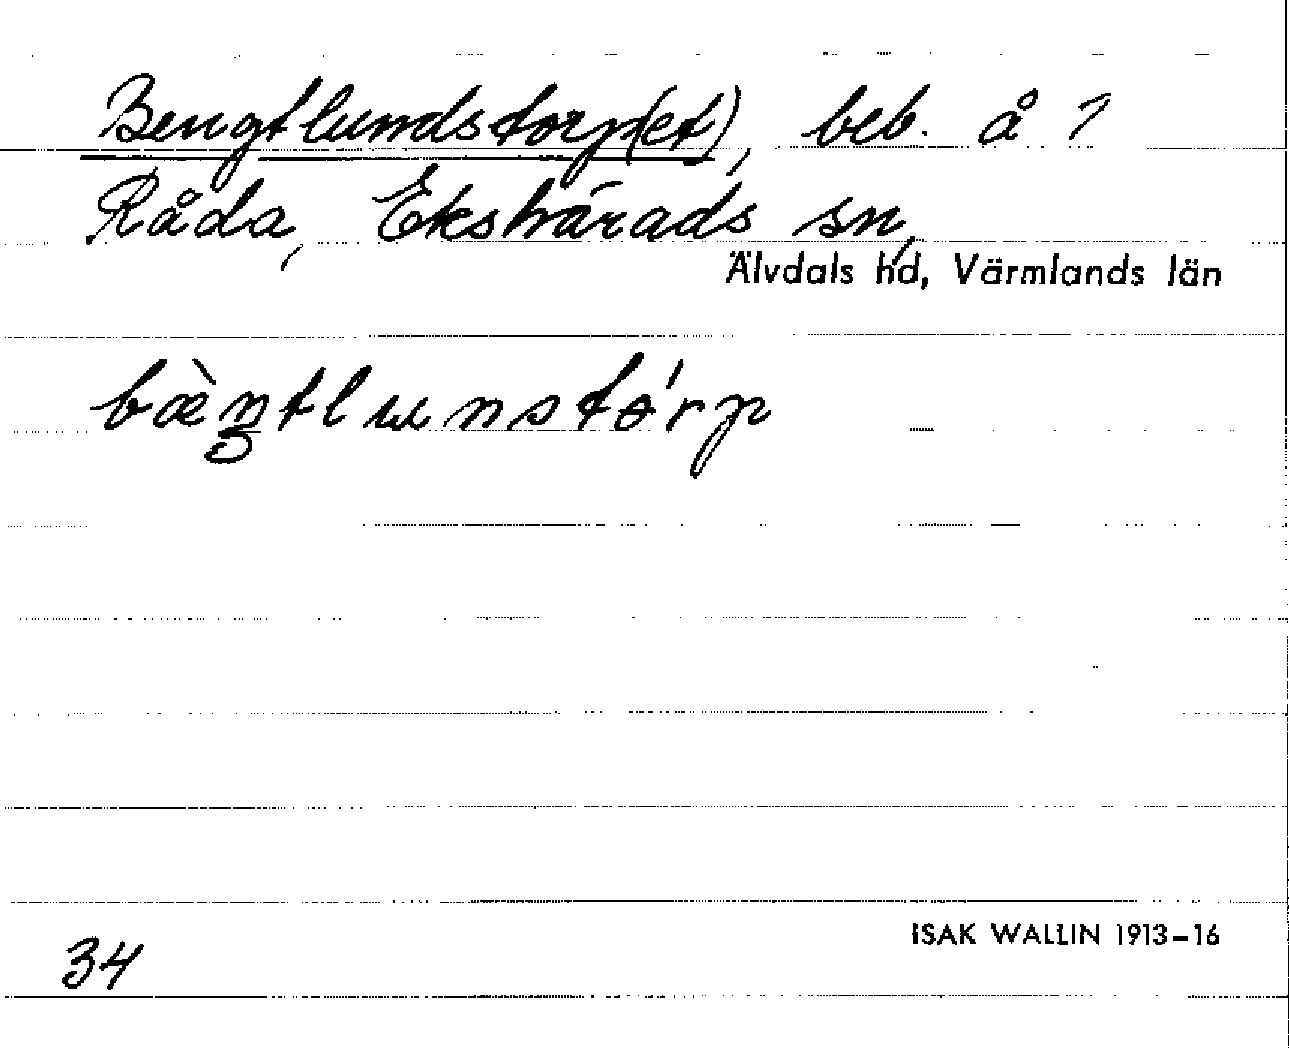 Bengtlundstorp(et), beb. å ?
Råda, Ekshärads sn,
Älvdals hd, Värmlands län
bæ̀ŋtlunstǿrp
ISAK WALLIN 1913–16
34